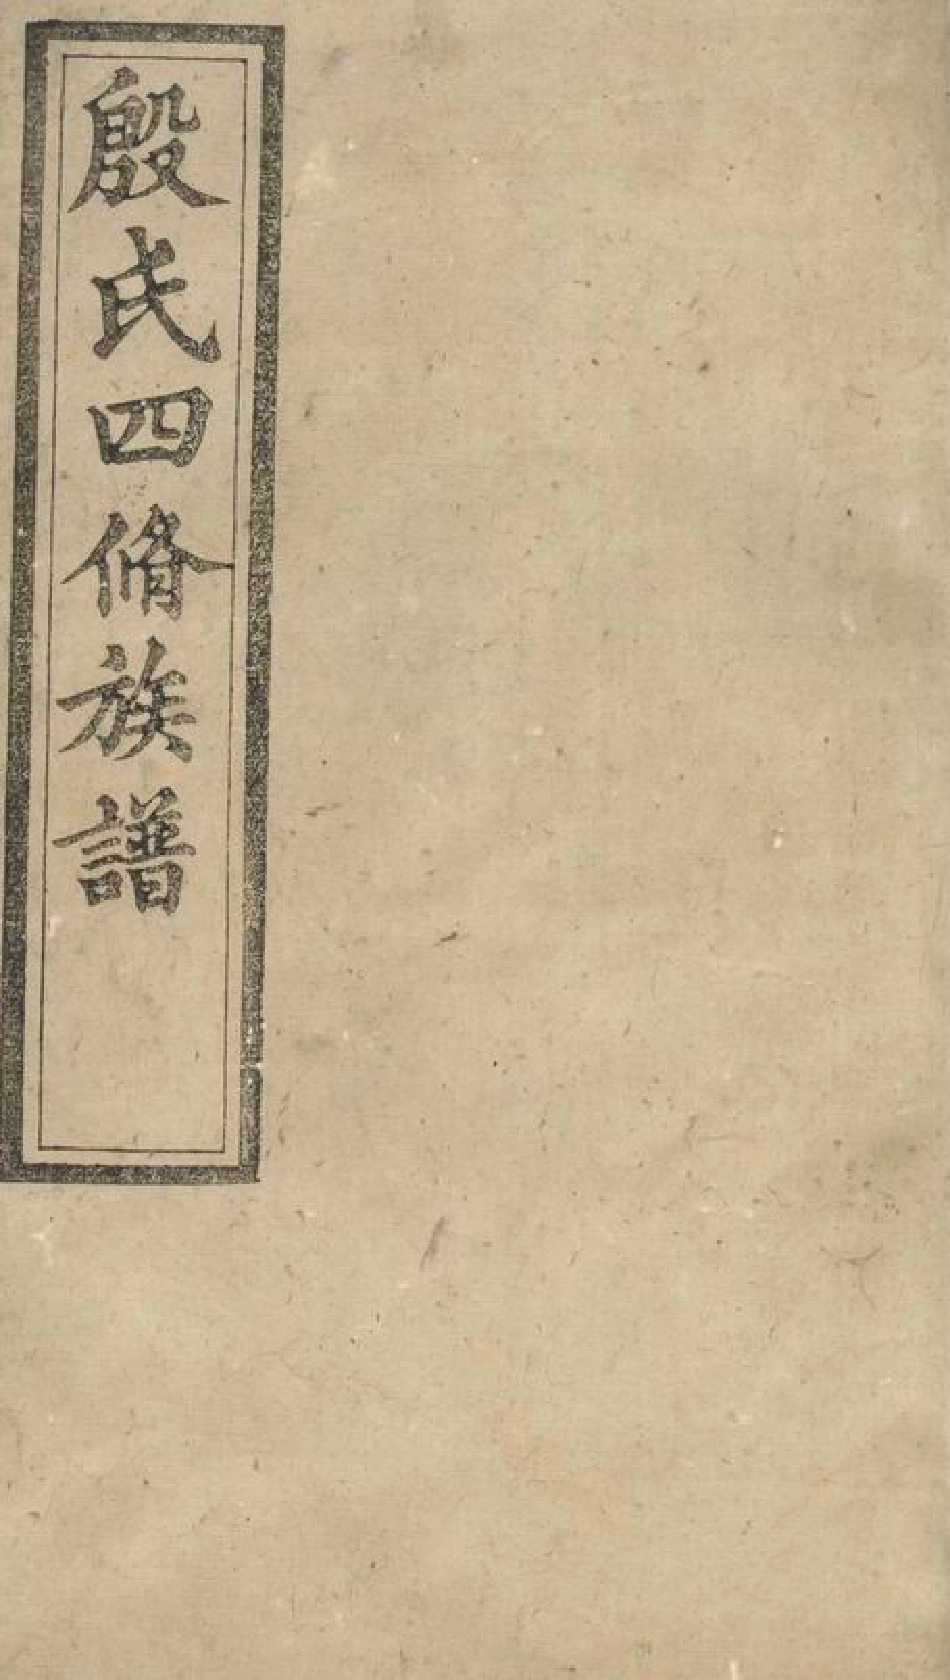 殷氏四脩族譜